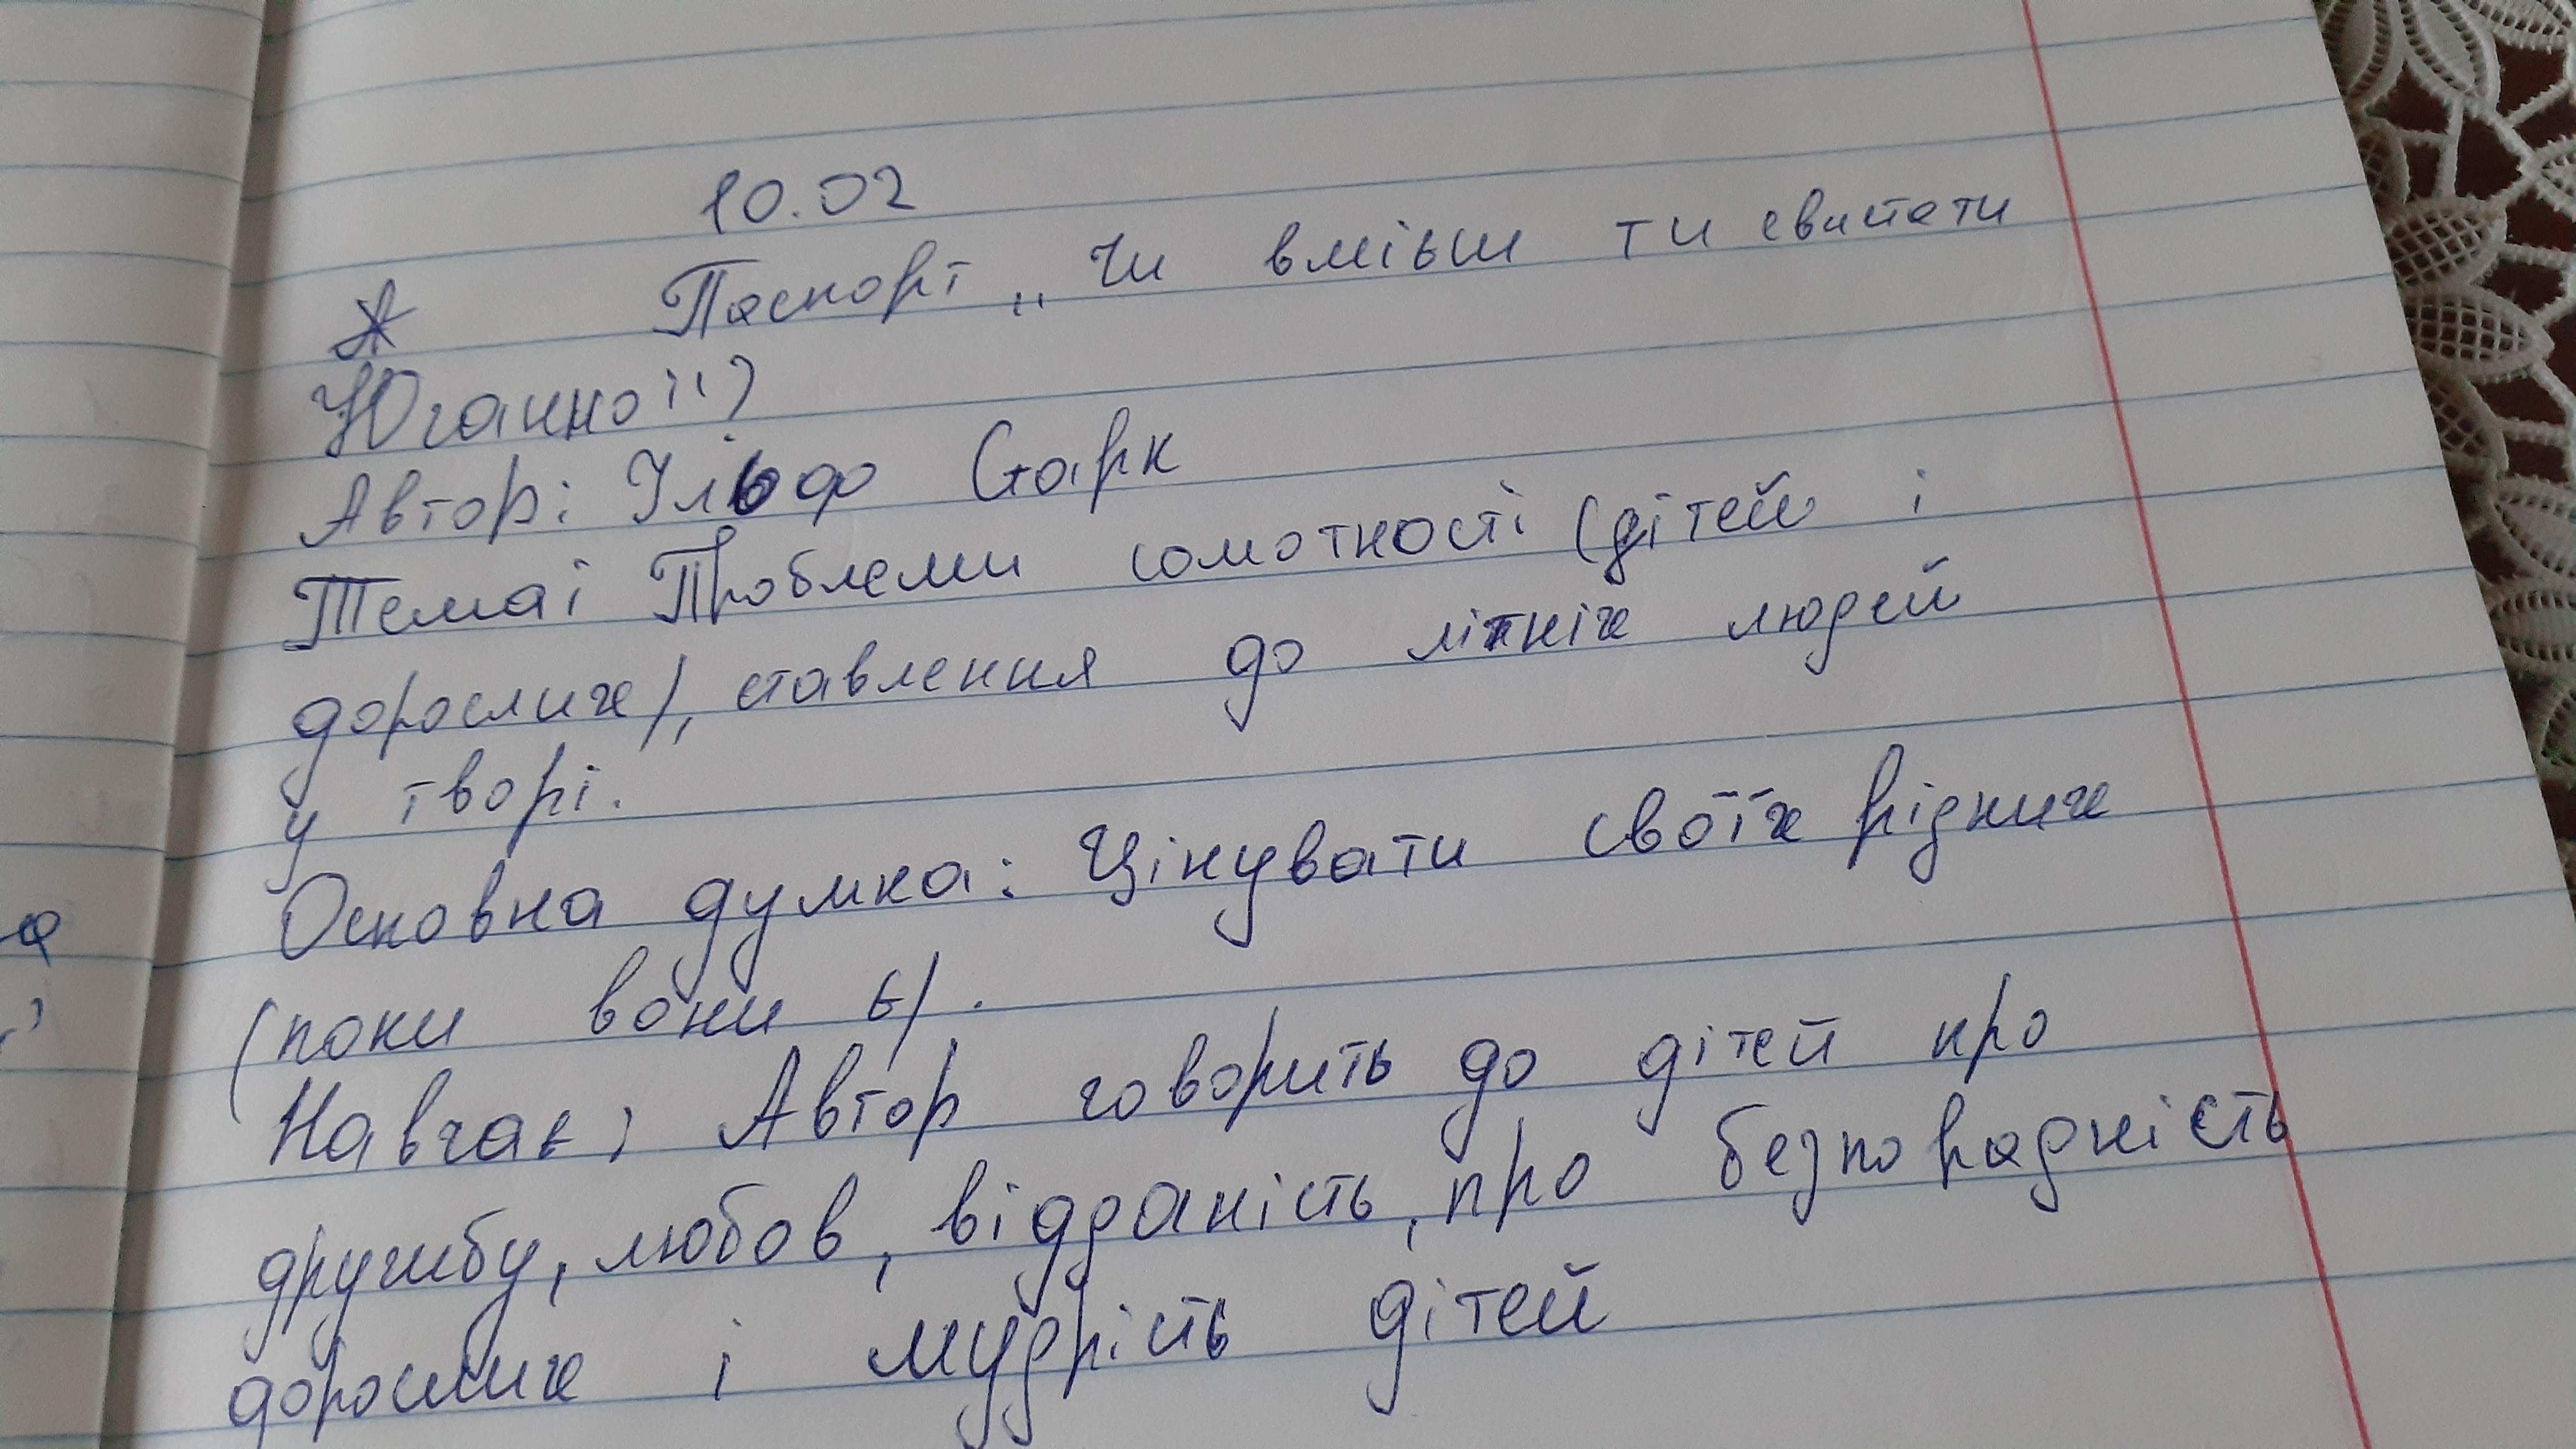 10.02
Паспорт „Чи вмієш ти свистати
Юганно ї")
Автор: Ільф Старк
Тема: Проблеми самотності (дітей і
дорослих), ставлення до літніх людей
у творі.
Основна думка: Цінувати своїх рідних
(поки вони є).
Навчає: Автор говорить до дітей про
дружбу, любов, відданість, про безпорадність
дорослих і мудрість дітей